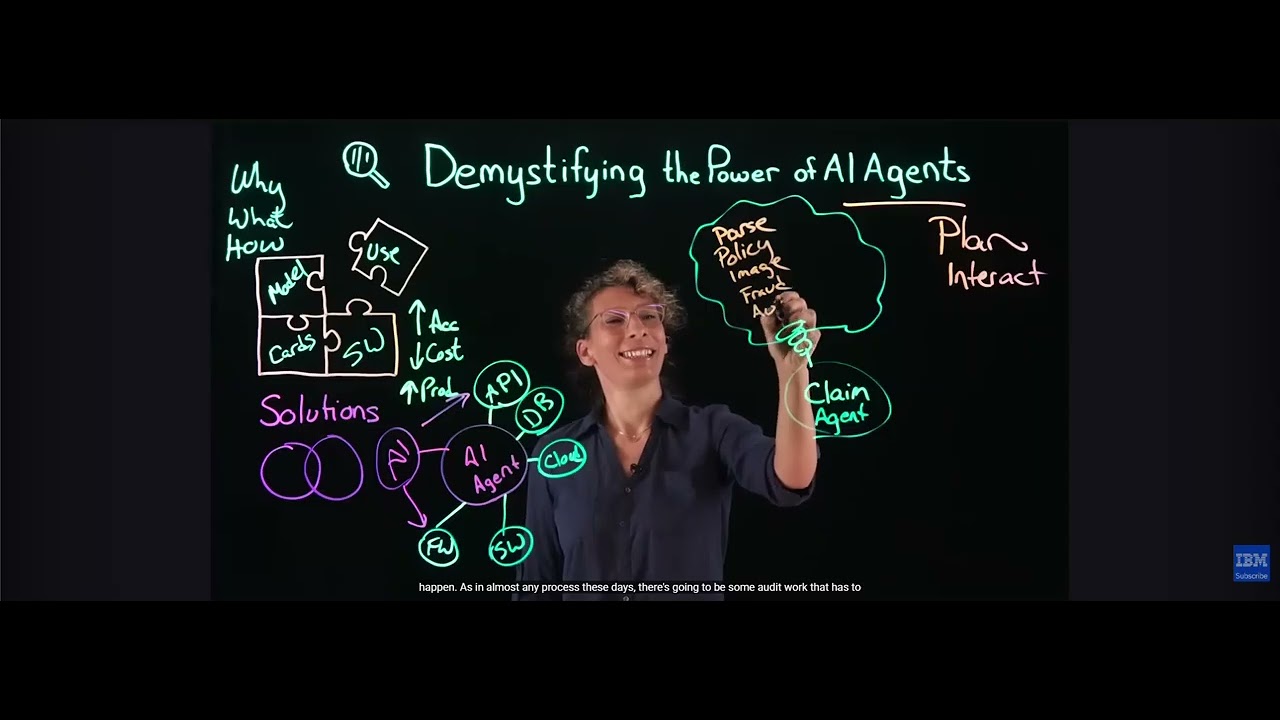 Demystifying the Power of AI Agents
Why
What
How
Use
Model
Cards
SW
↑ Acc
↓ Cost
↑ Prod
Solutions
AI
AI
Agent
API
DB
Cloud
FW
SW
Parse
Policy
Image
Fraud
Au
Claim
Agent
Plan
Interact
happen. As in almost any process these days, there's going to be some audit work that has to
IBM
Subscribe